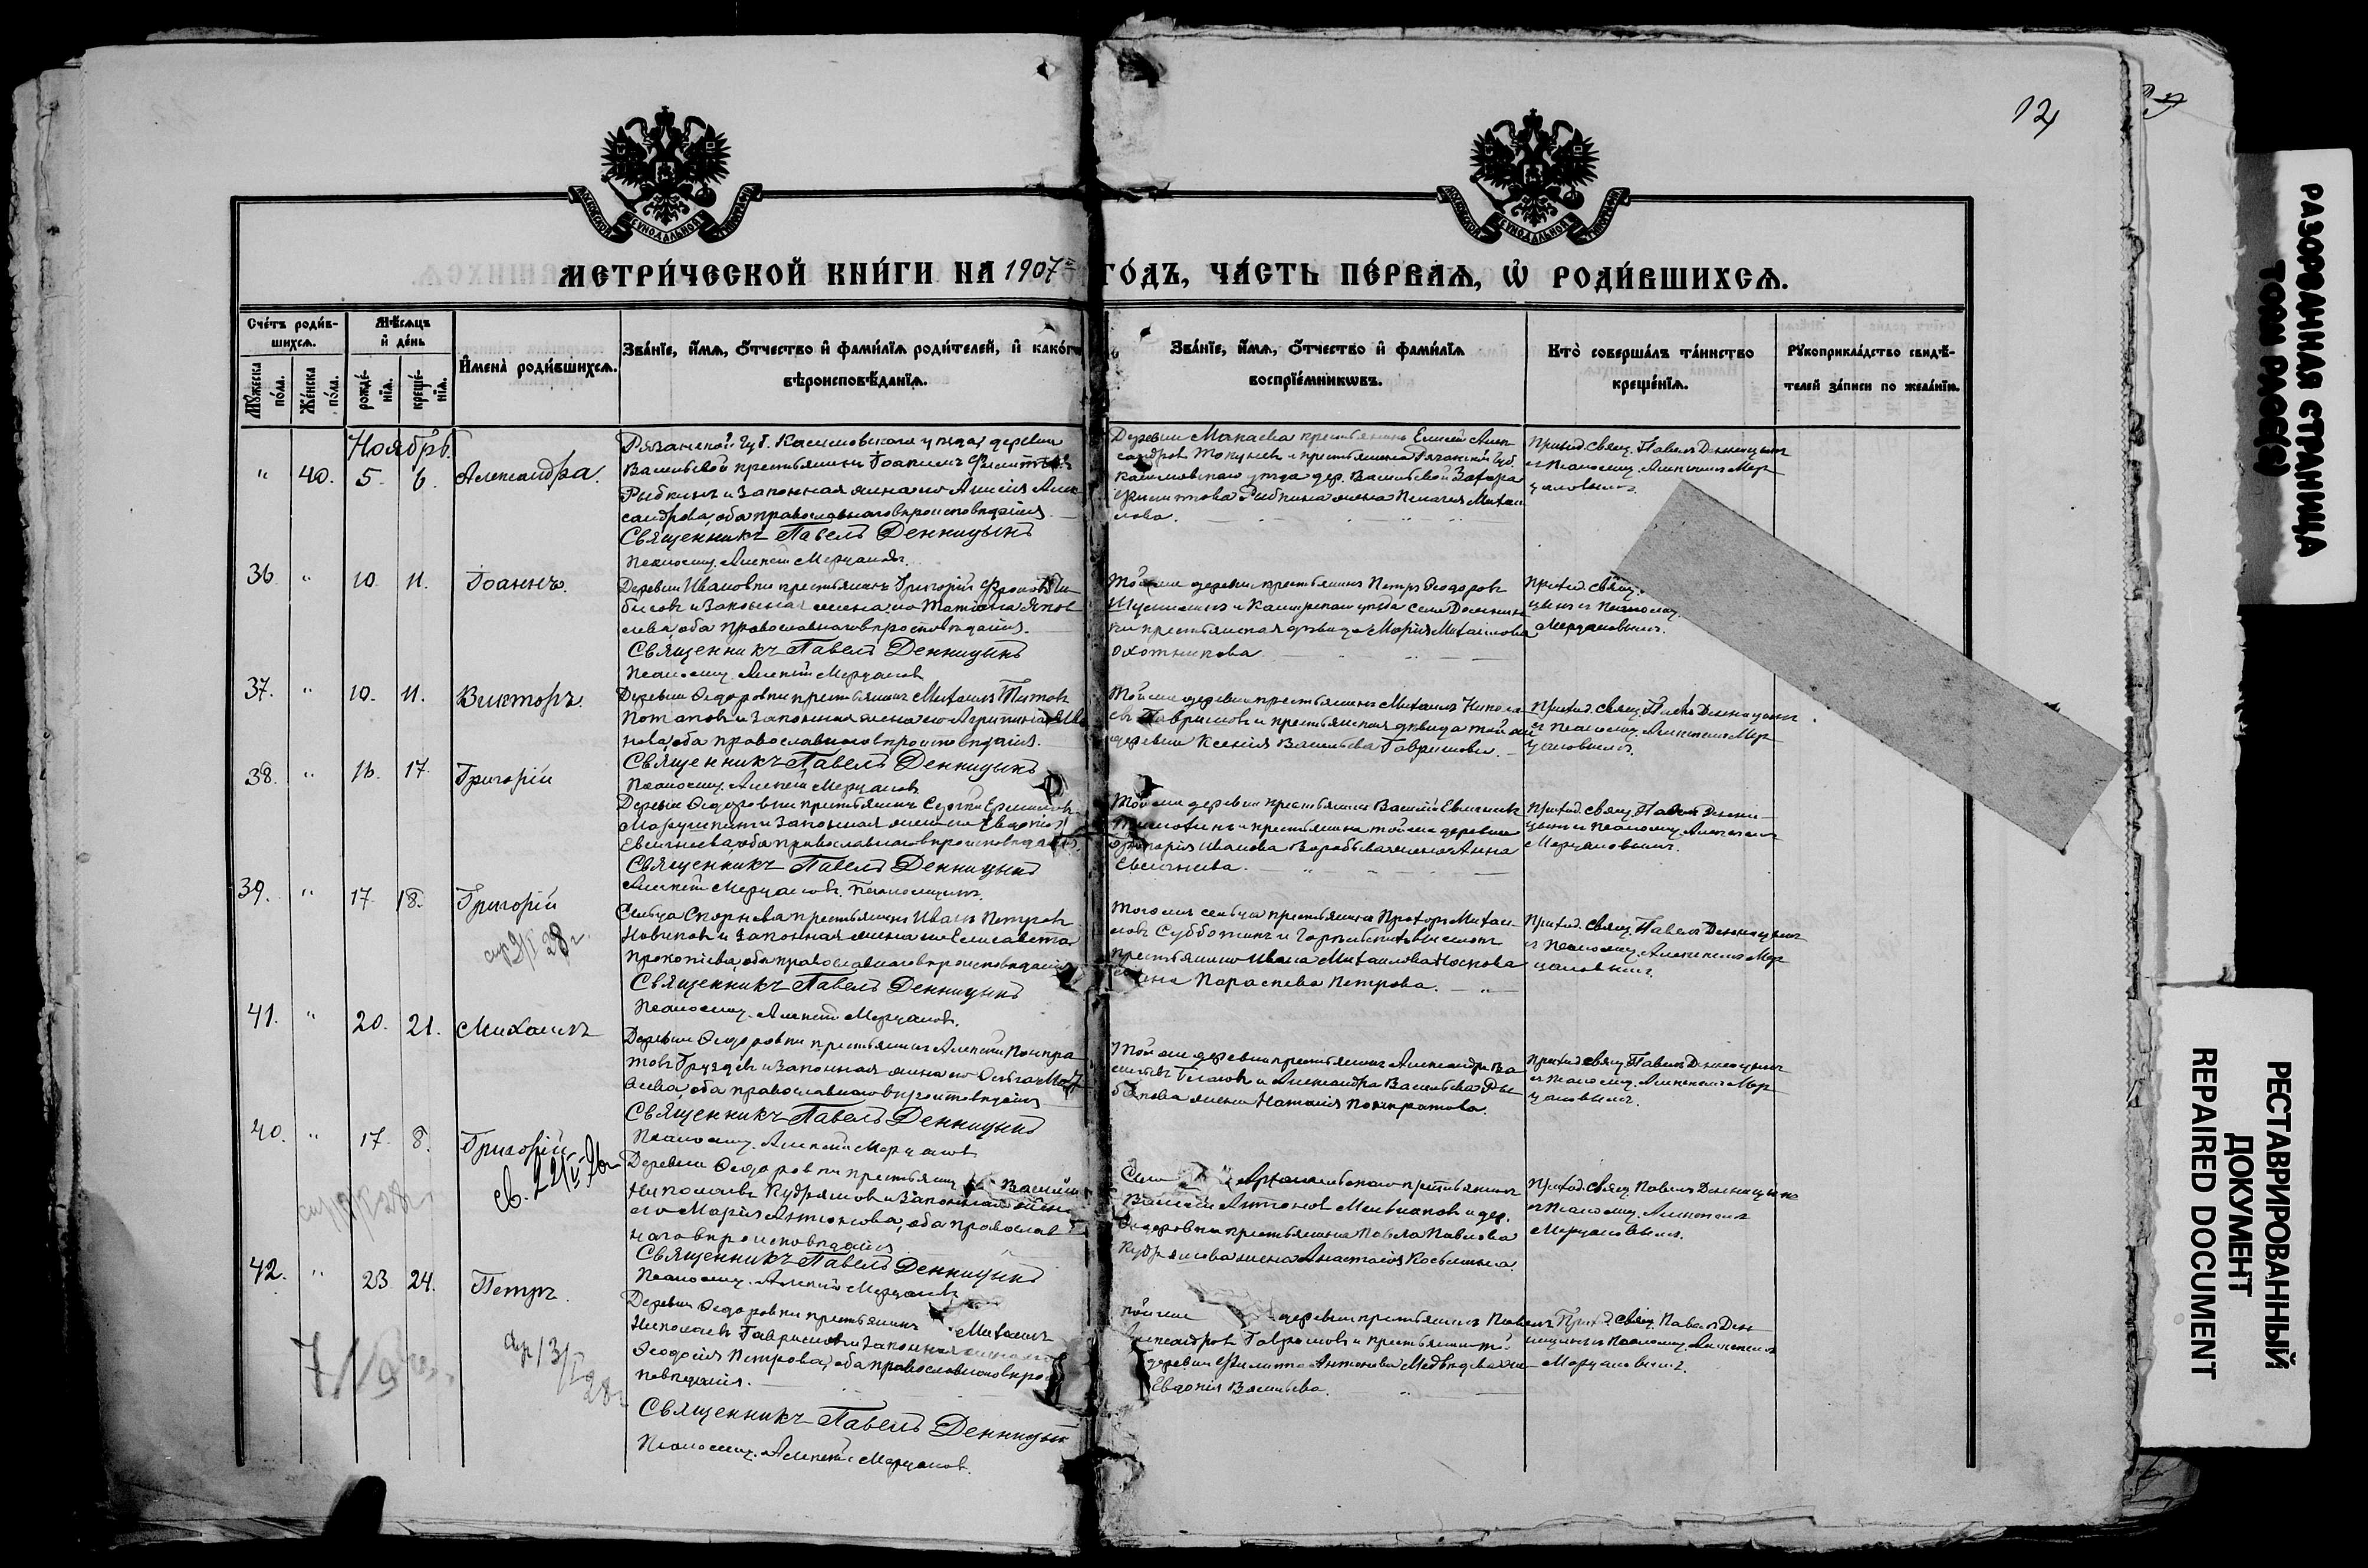 12
МЕТРИ́ЧЕСКОЙ КНИ́ГИ НА 1907 ГО́ДЪ, ЧА́СТЬ ПЕ́РВАѦ, Ѡ РОДИ́ВШИХСѦ.
Сче́тъ роди́в-
шихсѧ.
Мѣ́сѧцъ
и де́нь
Мꙋ́жеска по́ла.
Же́нска по́ла.
рожде́-
нїѧ.
креще́-
нїѧ.
Имена̀ роди́вшихсѧ.
Зва́нїе, и́мѧ, ѻ́тчество и фами́лїѧ роди́телей, и како́гѡ
вѣроисповѣ́данїѧ.
Зва́нїе, и́мѧ, ѻ́тчество и фами́лїѧ
воспрїе́мникѡвъ.
Кто̀ соверша́лъ та́инство
креще́нїѧ.
Рꙋкоприкла́дство свидѣ́-
телей за́писи по жела́нїю.
Ноябрь
" 40. 5. 6. Александра.
Рязанской губ. Касимовскаго уѣзда, деревни
Василевой крестьянинъ Іоакимъ Филитовъ
Рыбкинъ и законная жена его Анисія Алек
сандрова, оба православнаго вѣроисповѣданія
Священникъ Павелъ Денницынъ
Псаломщ. Алексѣй Мерцаловъ.
Деревни Макаева крестьянинъ Елисей Алек
сандровъ и крестьянина Рязанской Губ.
Касимовскаго уѣзда дер. Василевой Захара
Филитова Рыбкина жена Пелагея Михаи
лова.
Приход. свящ. Павелъ Денницынъ
съ Псаломщ. Алексѣемъ Мер
цаловымъ.
36. " 10. 11. Іоаннъ.
Деревни Ивановки крестьянинъ Григорій
и законная жена его Татіана Яков
лева, оба православнаго вѣроисповѣданія.
Священникъ Павелъ Денницынъ
Псаломщ. Алексѣй Мерцаловъ
Той же деревни крестьянинъ Петръ Ѳеодоровъ
и Каширскаго уѣзда села
крестьянская дѣвица Марія Михаилова
Охотникова
Приход. свящ.
цынъ съ Псаломщ.
Мерцаловымъ.
37. " 10. 11. Викторъ.
Деревни Ѳедоровки крестьянинъ Михаилъ Титовъ
Потаповъ и законная жена его Агрипина Ива
нова, оба православнаго вѣроисповѣданія.
Священникъ Павелъ Денницынъ
Псаломщ. Алексѣй Мерцаловъ
Той же деревни крестьянинъ Михаилъ Никола
евъ Гавриловъ и крестьянская дѣвица той же
деревни Ксенія Васильева Гаврилова.
Приход. свящ. Павелъ Денницынъ
съ Псаломщ. Алексѣемъ Мер
цаловымъ.
38. " 16. 17. Григорій
Деревни Ѳедоровки крестьянинъ Сергѣй
и законная жена его Евдокія
Евсигнеева, оба православнаго вѣроисповѣданія.
Священникъ Павелъ Денницынъ
Алексѣй Мерцаловъ. Псаломщикъ.
Той же деревни крестьянинъ Василій
и крестьянина той же деревни
Григорія Иванова Воробьева жена Анна
Евсигнеева.
Приход. свящ. Павелъ Денни-
цынъ съ Псаломщ. Алексѣемъ
Мерцаловымъ.
39. " 17. 18. Григорій
Сельца крестьянинъ Иванъ Петровъ
Новиковъ и законная жена его Елисавета
Прокопіева, оба православнаго вѣроисповѣданія
Священникъ Павелъ Денницынъ
Псаломщ. Алексѣй Мерцаловъ.
Того же сельца крестьянинъ Прохоръ Михаи-
ловъ Субботинъ и
крестьянина Ивана Михаилова Носкова
жена Параскева Петрова.
Приход. свящ. Павелъ Денницынъ
съ Псаломщ. Алексѣемъ Мер
цаловымъ.
41. " 20. 21. Михаилъ
Деревни Ѳедоровки крестьянинъ Алексѣй Понкра
товъ Груздевъ и законная жена его Ольга
оба православнаго вѣроисповѣданія
Священникъ Павелъ Денницынъ
Псаломщ. Алексѣй Мерцаловъ
Той же деревни крестьянинъ Александръ Ва
сильевъ и Александра Васильева
жена Наталія Понкратова.
Приход. свящ. Павелъ Денницынъ
съ Псаломщ. Алексѣемъ Мер
цаловымъ.
40. " 17. 8. Григорій
Деревни Ѳедоровки крестьянинъ Василій
Николаевъ Кудряшовъ и законная жена
его Марія Антонова, оба православ
наго вѣроисповѣданія
Священникъ Павелъ Денницынъ
Псаломщ. Алексѣй Мерцаловъ
Села Архангельскаго крестьянинъ
Василій Антоновъ и дер.
Ѳедоровки крестьянина Павла Павлова
Кудряшова жена Анастасія Косьмина.
Приход. свящ. Павелъ Денницынъ
съ Псаломщ. Алексѣемъ
Мерцаловымъ.
42. " 23. 24. Петръ.
Деревни Ѳедоровки крестьянинъ Михаилъ
Николаевъ Гавриловъ и законная жена его
Ѳеодосія Петрова, оба православнаго вѣроис
повѣданія.
Священникъ Павелъ Денницын
Псаломщ. Алексѣй Мерцаловъ.
Той же деревни крестьянинъ Павелъ
Александровъ Гавриловъ и крестьянина той
деревни Филиппа Антонова Медведева жена
Евдокія Васильева.
Прих. свящ. Павелъ Ден
ницынъ съ Псаломщ. Алексѣемъ
Мерцаловымъ.
РАЗОРВАННАЯ СТРАНИЦА
TORN PAGE(S)
РЕСТАВРИРОВАННЫЙ
ДОКУМЕНТ
REPAIRED DOCUMENT